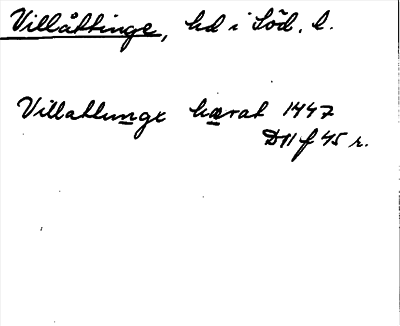 Villåttinge, hd i Söd. l.
Villattunge hærat 1447
D11 f 45 r.